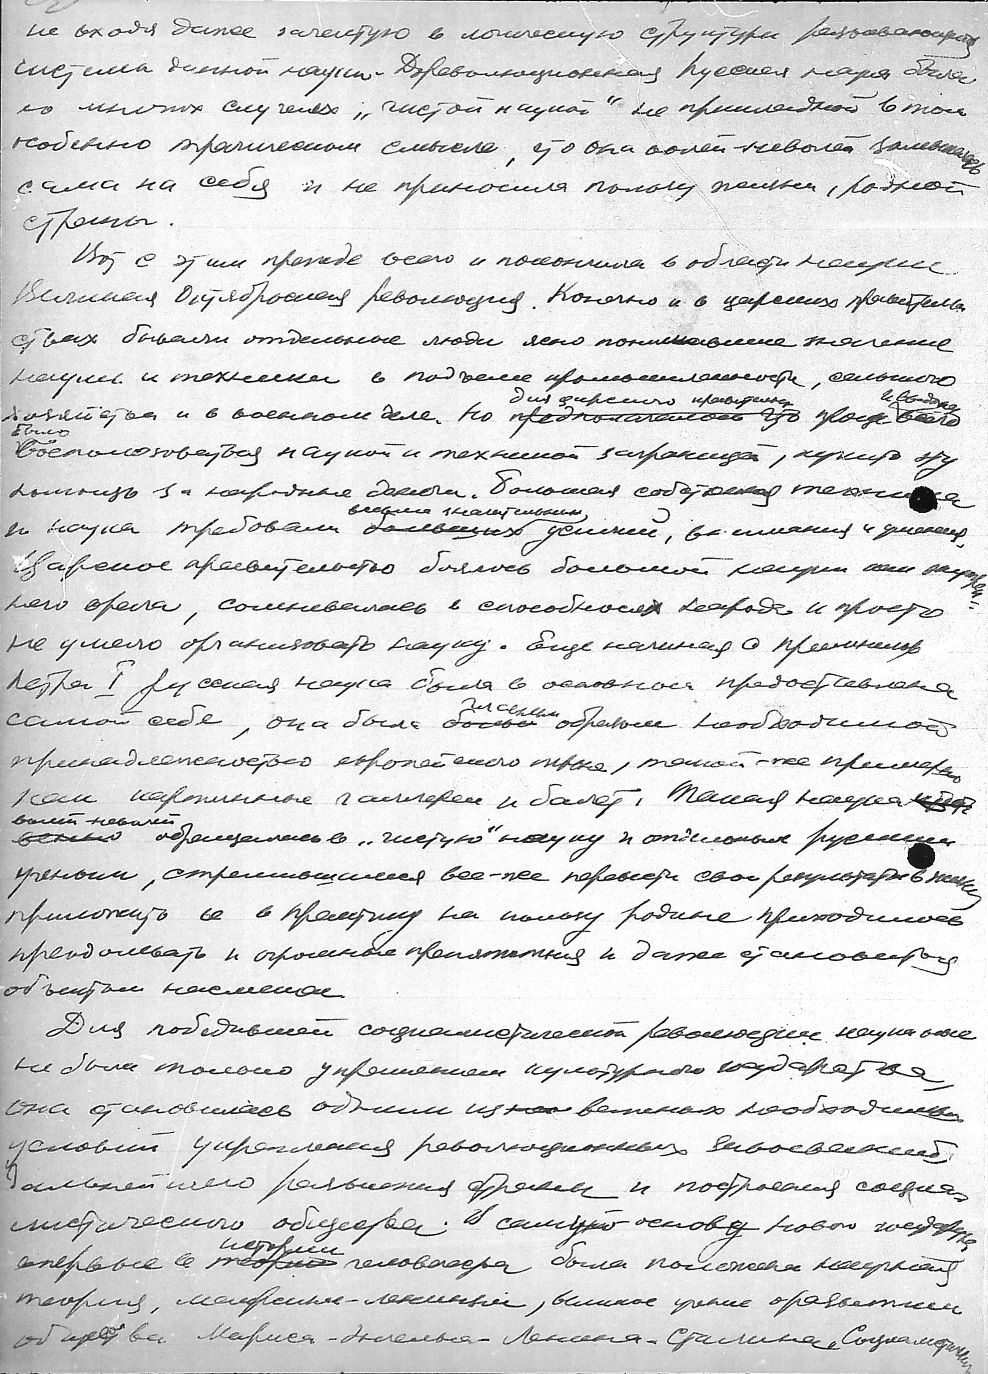 не входя даже зачастую в логическую структуру развивающейся
системы данной науки. Дореволюционная русская наука была
во многих случаях „чистой наукой“ не прикладной в том
особенно трагическом смысле, что она волей-неволей замыкалась
сама на себя и не приносила пользу жизни, родной
страны.
Вот с этим прежде всего и покончила в области науки
Великая Октябрьская революция. Конечно и в царских правитель
ствах бывали отдельные люди ясно понимавшие значение
науки и техники в подъеме промышленности, сельского
для царского правительства и выгодно
хозяйства и в военном деле. Но предполагалось что проще всего
было
воспользоваться наукой и техникой заграницей, купить эту
помощь за народные деньги. Большая собственная техника
весьма значительных
и наука требовали больших усилий, внимания и умения.
Царское правительство боялось большой науки как внутрен-
него врага, сомневалось в способностях народа и просто
не умело организовать науку. Еще начиная с преемников
Петра I русская наука была в основном предоставлена
главным
самой себе, она была образом необходимой
принадлежностью европейского тона, такой-же примерно
как картинные галлереи и балет. Такая наука
волей-неволей
обращалась в „чистую“ науку и отдельным русским
ученым, стремившимся все-же перевести свои результаты в жизнь
приложить ее в практику на пользу родине приходилось
преодолевать и огромные препятствия и даже становиться
объектом насмешек.
Для победившей социалистической революции наука уже
не была только украшением культурного государства,
она становилась одним из важных необходимых
условий укрепления революционных завоеваний,
дальнейшего развития страны и построения социа-
листического общества. В самую основу нового государства
истории
впервые в теории человечества была положена научная
теория, марксизм-ленинизм, великое учение о развитии
общества Маркса-Энгельса-Ленина-Сталина. Социалистическ